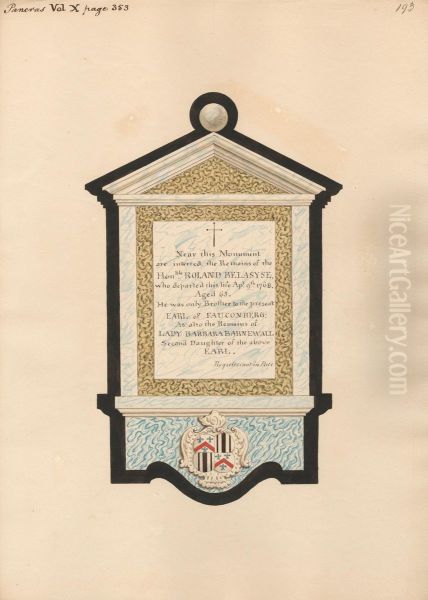 Pancras Vol X page 353
193
Near this Monument
are interred, the Remains of the
Honble ROLAND BELASYSE,
who departed this life Apl 9th 1768.
Aged 65.
He was only Brother to the present
EARL of FAUCONBERG:
As also the Remains of
LADY BARBARA BARNEWALL
Second Daughter of the above
EARL.
Requiescant in Pace
NiceArtGallery.com